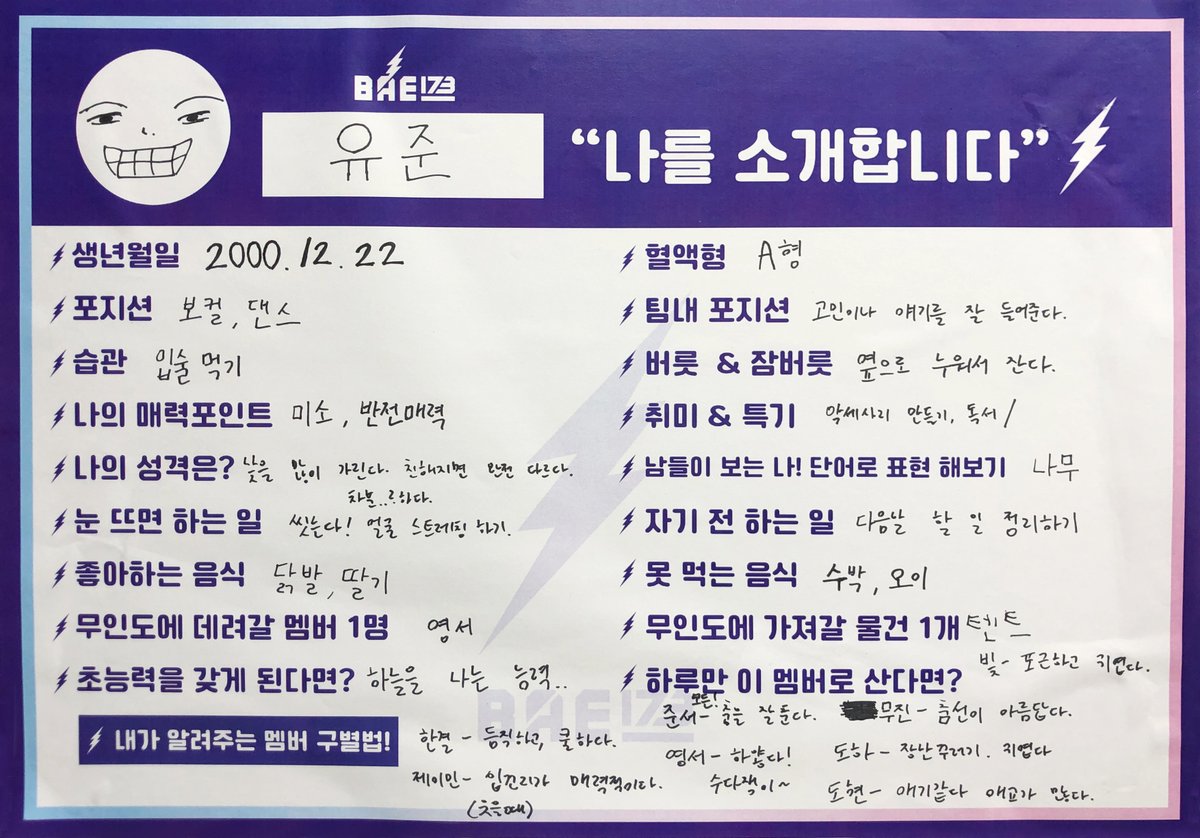 BAE173
유준
“나를 소개합니다”
생년월일 2000.12.22
혈액형 A형
포지션 보컬, 댄스
팀내 포지션 고민이나 얘기를 잘 들어준다.
습관 입술 먹기
버릇 & 잠버릇 옆으로 누워서 잔다.
나의 매력포인트 미소, 반전매력
취미 & 특기 악세사리 만들기, 독서/
나의 성격은? 낯을 많이 가린다. 친해지면 완전 다르다.
차분..하다.
남들이 보는 나! 단어로 표현 해보기 나무
눈 뜨면 하는 일 씻는다! 얼굴 스트레칭 하기.
자기 전 하는 일 다음날 할 일 정리하기
좋아하는 음식 닭발, 딸기
못 먹는 음식 수박, 오이
무인도에 데려갈 멤버 1명 영서
무인도에 가져갈 물건 1개 텐트
초능력을 갖게 된다면? 하늘을 나는 능력..
하루만 이 멤버로 산다면?
빛 - 포근하고 귀엽다.
BAE173
내가 알려주는 멤버 구별법!
한결 - 듬직하고, 쿨하다.
제이민 - 입꼬리가 매력적이다.
(웃을때)
모든!
준서 - 춤을 잘 춘다.
무진 - 춤선이 아름답다.
영서 - 하얗다!
수다쟁이~
도하 - 장난꾸러기. 귀엽다
도현 - 애기같다 애교가 많다.